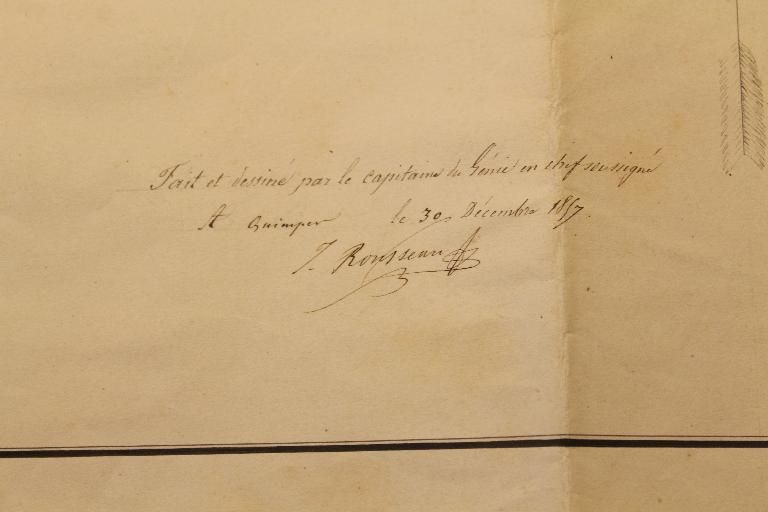 Fait et dessiné par le capitaine du Génie en chef soussigné
A Quimper le 30 Décembre 1857.
J. Rousseau